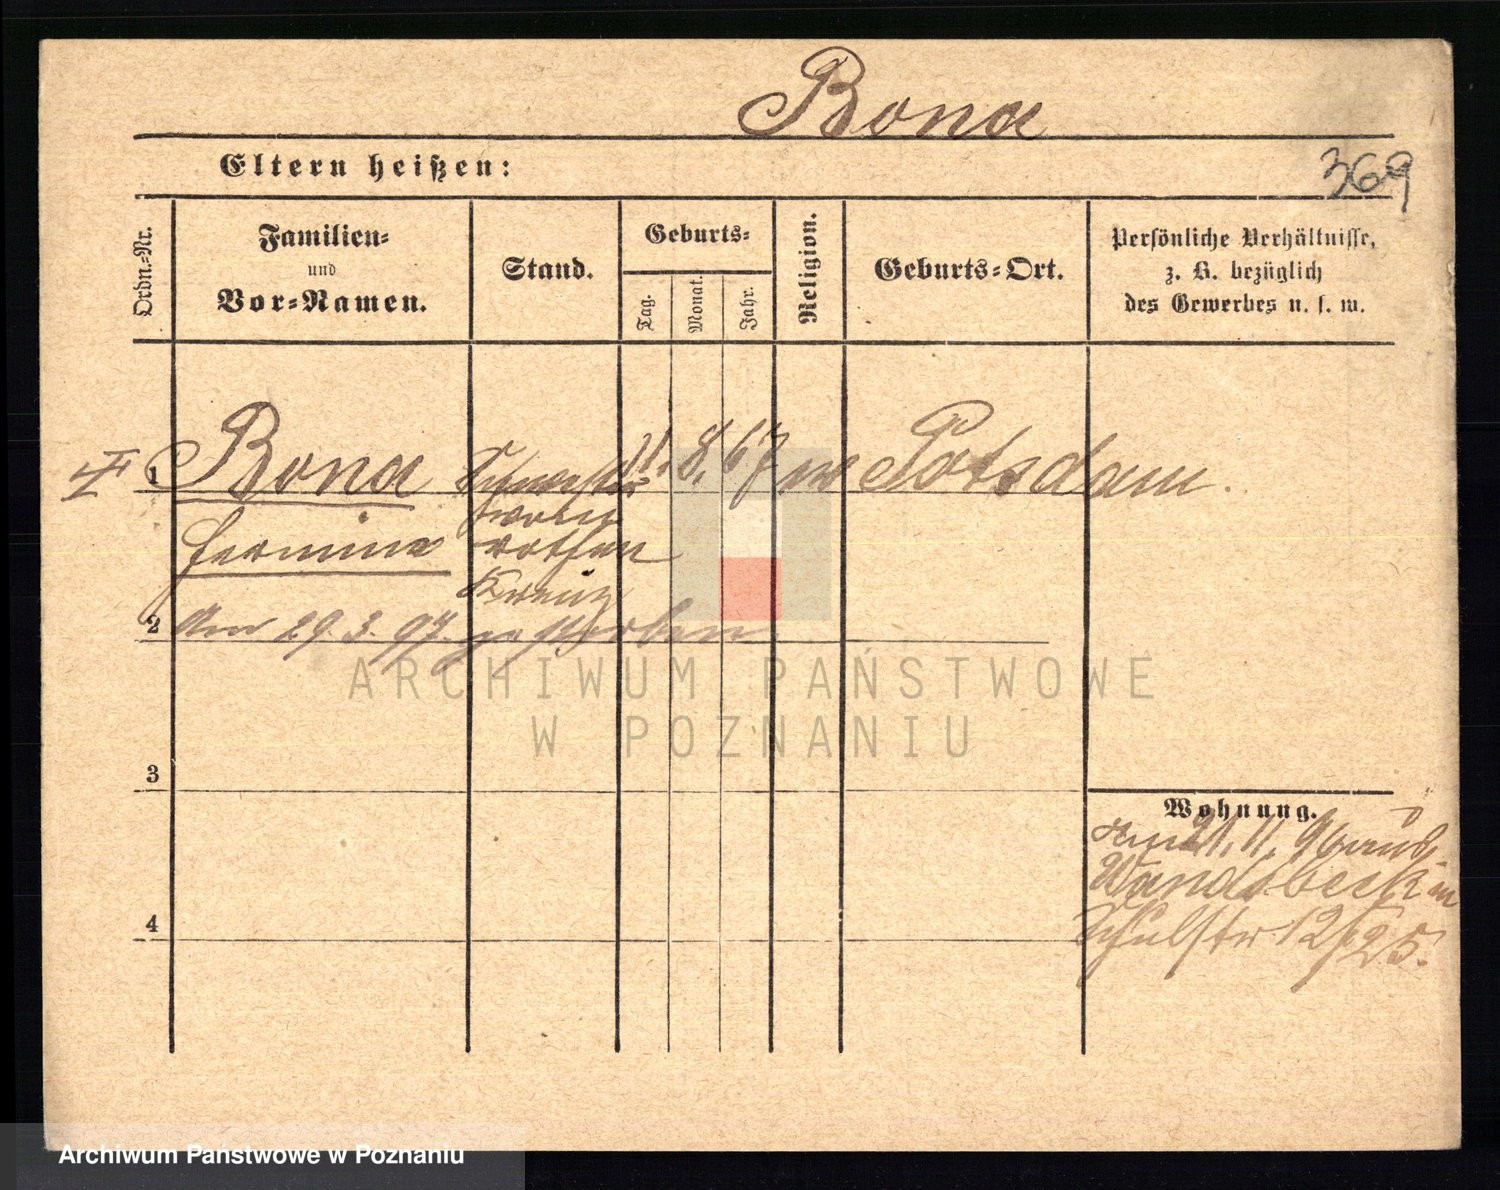 Bona
Eltern heißen:
369
Ordn.-Nr.
Familien-
und
Vor-Namen.
Stand.
Geburts-
Tag.
Monat.
Jahr.
Religion.
Geburts-Ort.
Persönliche Verhältnisse,
z. B. bezüglich
des Gewerbes u. s. w.
1 Bona Schwester 8. 67 Potsdam.
vom
Hermine rothen
Kreuz
2 Am 29. 3. 97. gestorben
ARCHIWUM PAŃSTWOWE
W POZNANIU
3
Wohnung.
21. 11. 96
Wandsbeck
4
Schulstr 12
Archiwum Państwowe w Poznaniu